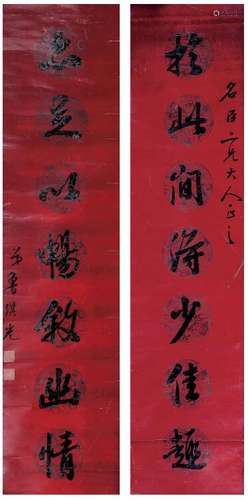 名臣六兄大人正之
於此間得少佳趣
亦足以暢敘幽情
弟魯琪光